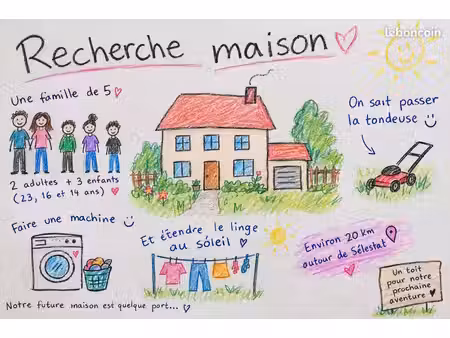 leboncoin
Recherche maison
Une famille de 5
2 adultes + 3 enfants
(23, 16 et 14 ans)
On sait passer
la tondeuse
Faire une machine
Et étendre le linge
au Sóleil
Environ 20 km
autour de Sélestat
Un toit
pour notre
prochaine
aventure
Notre future maison est quelque part...